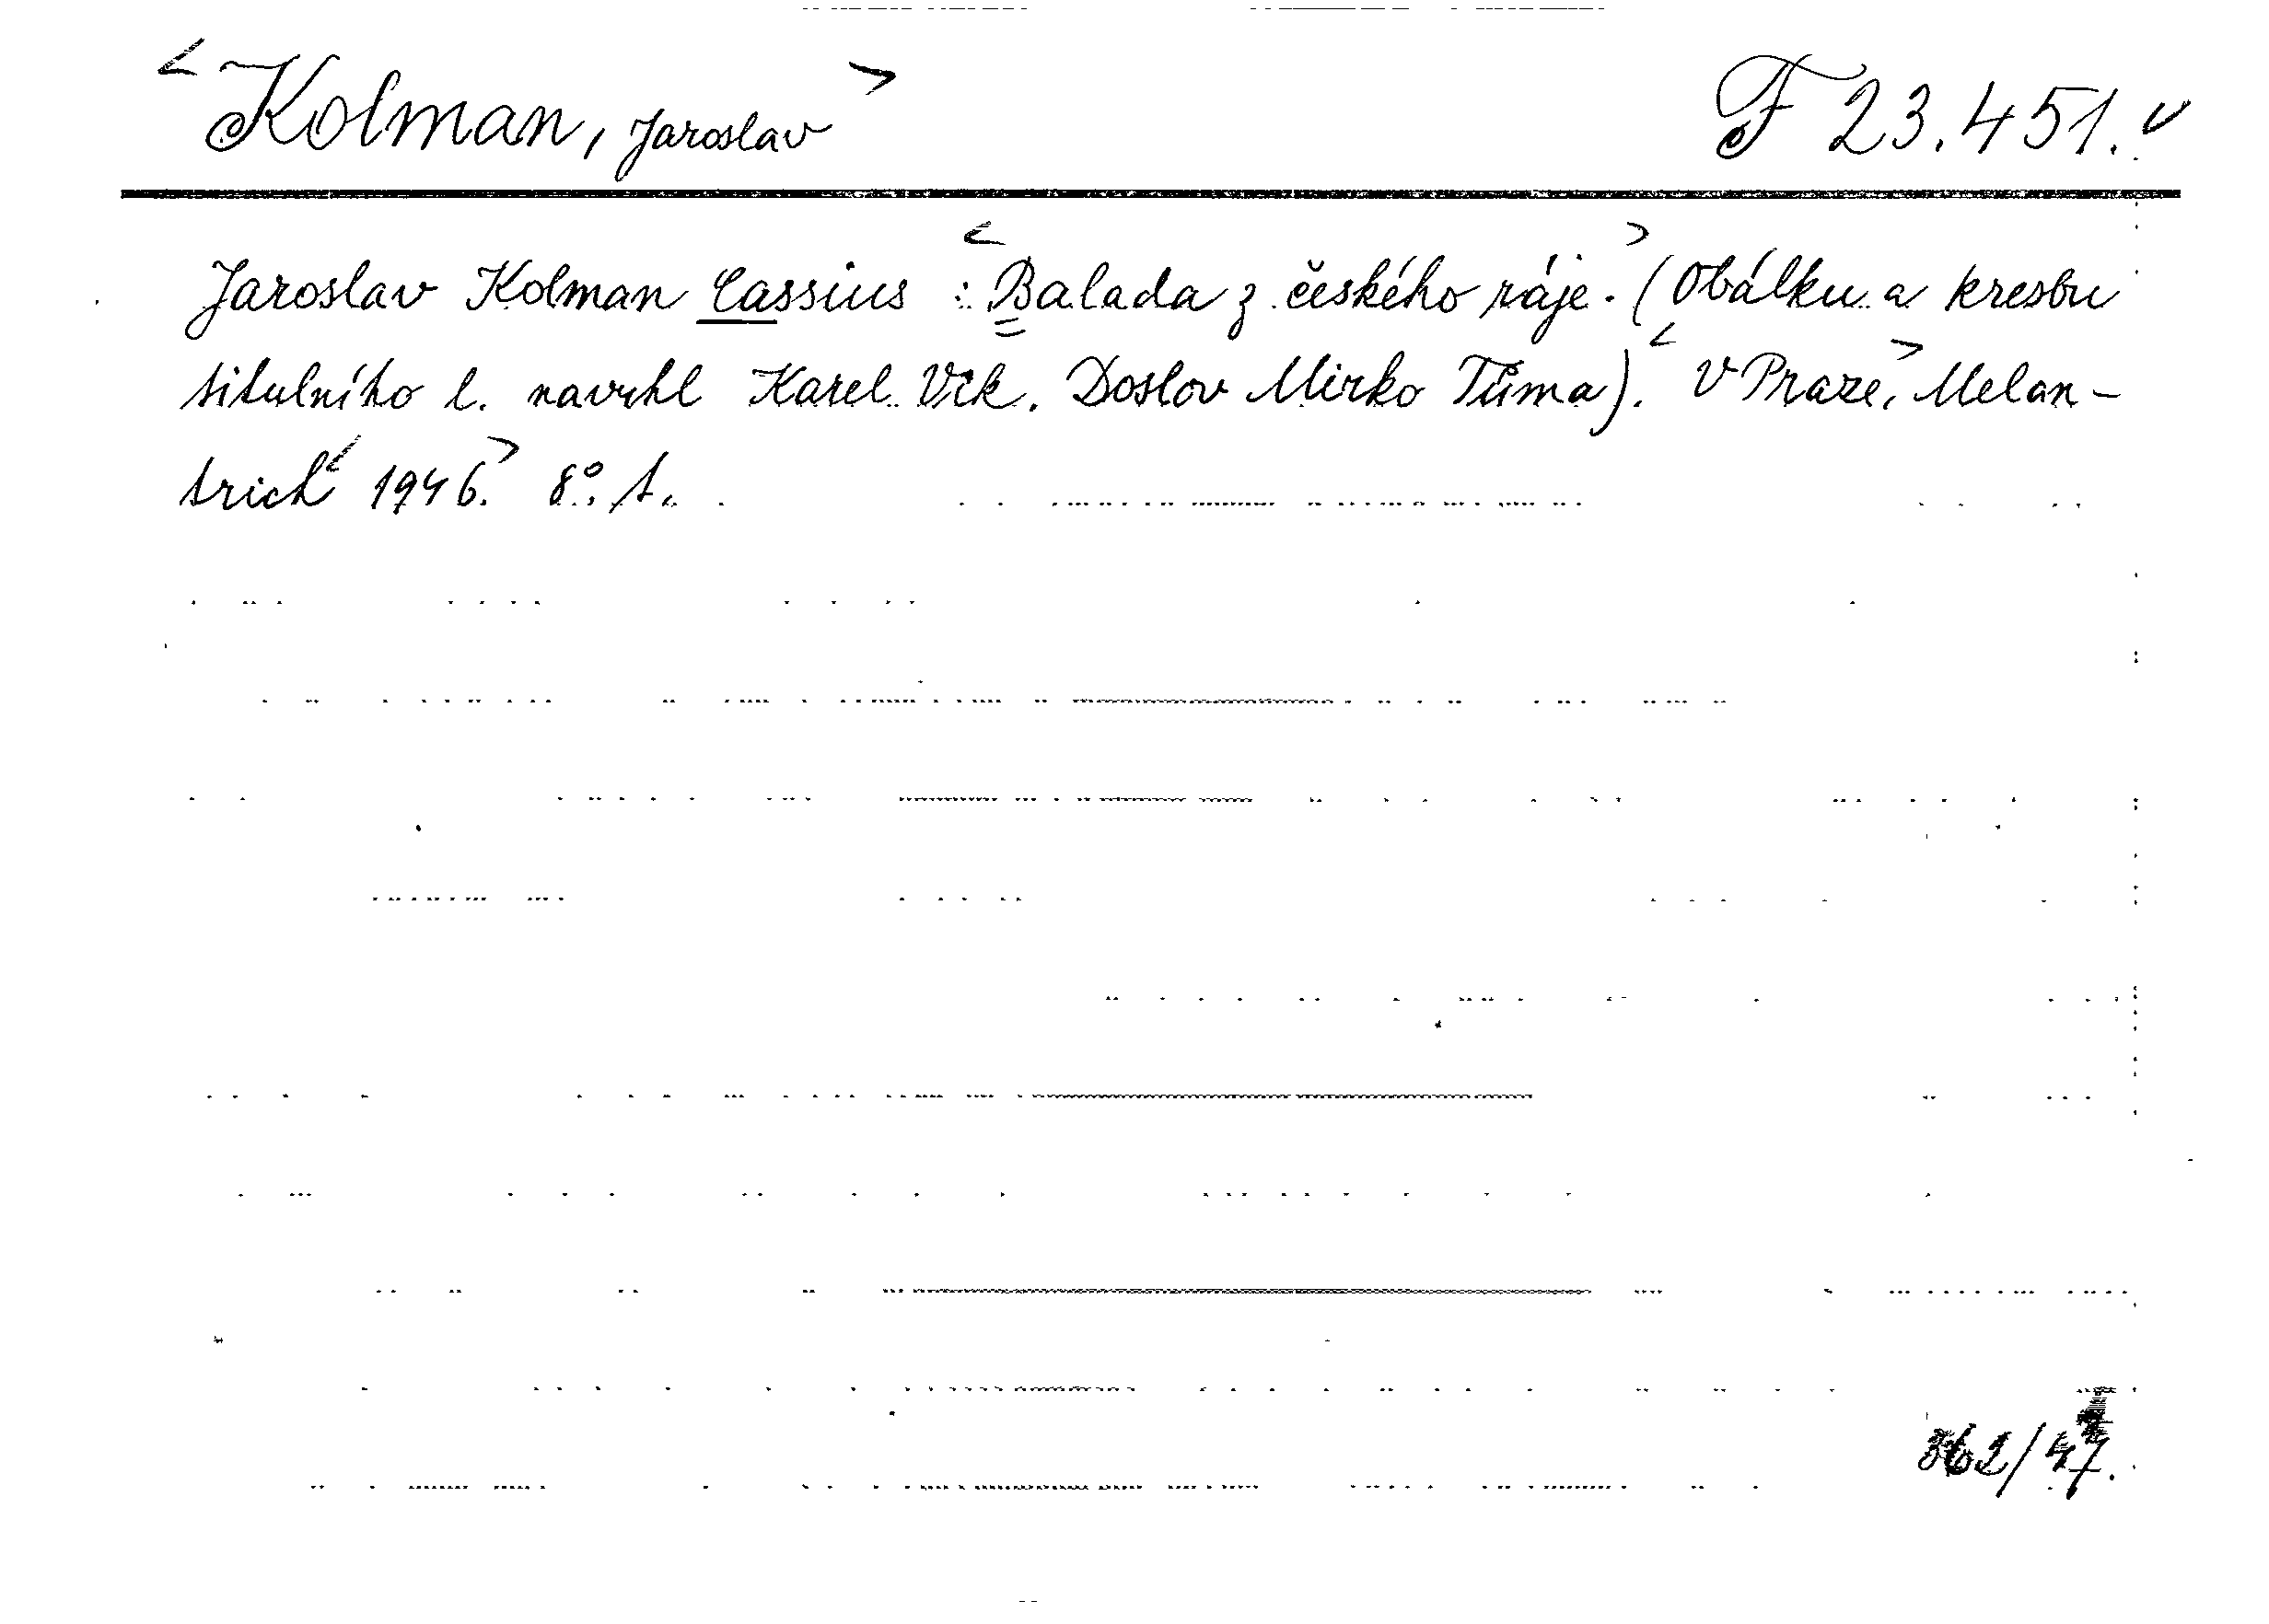 <Kolman, Jaroslav> F 23.451. v
Jaroslav Kolman Cassius : <Balada z českého ráje.> (Obálku a kresbu
titulního l. navrhl Karel Vik. Doslov Mirko Tůma). <V Praze,> Melan-
trich <1946.> 8°. 1.
362/47.